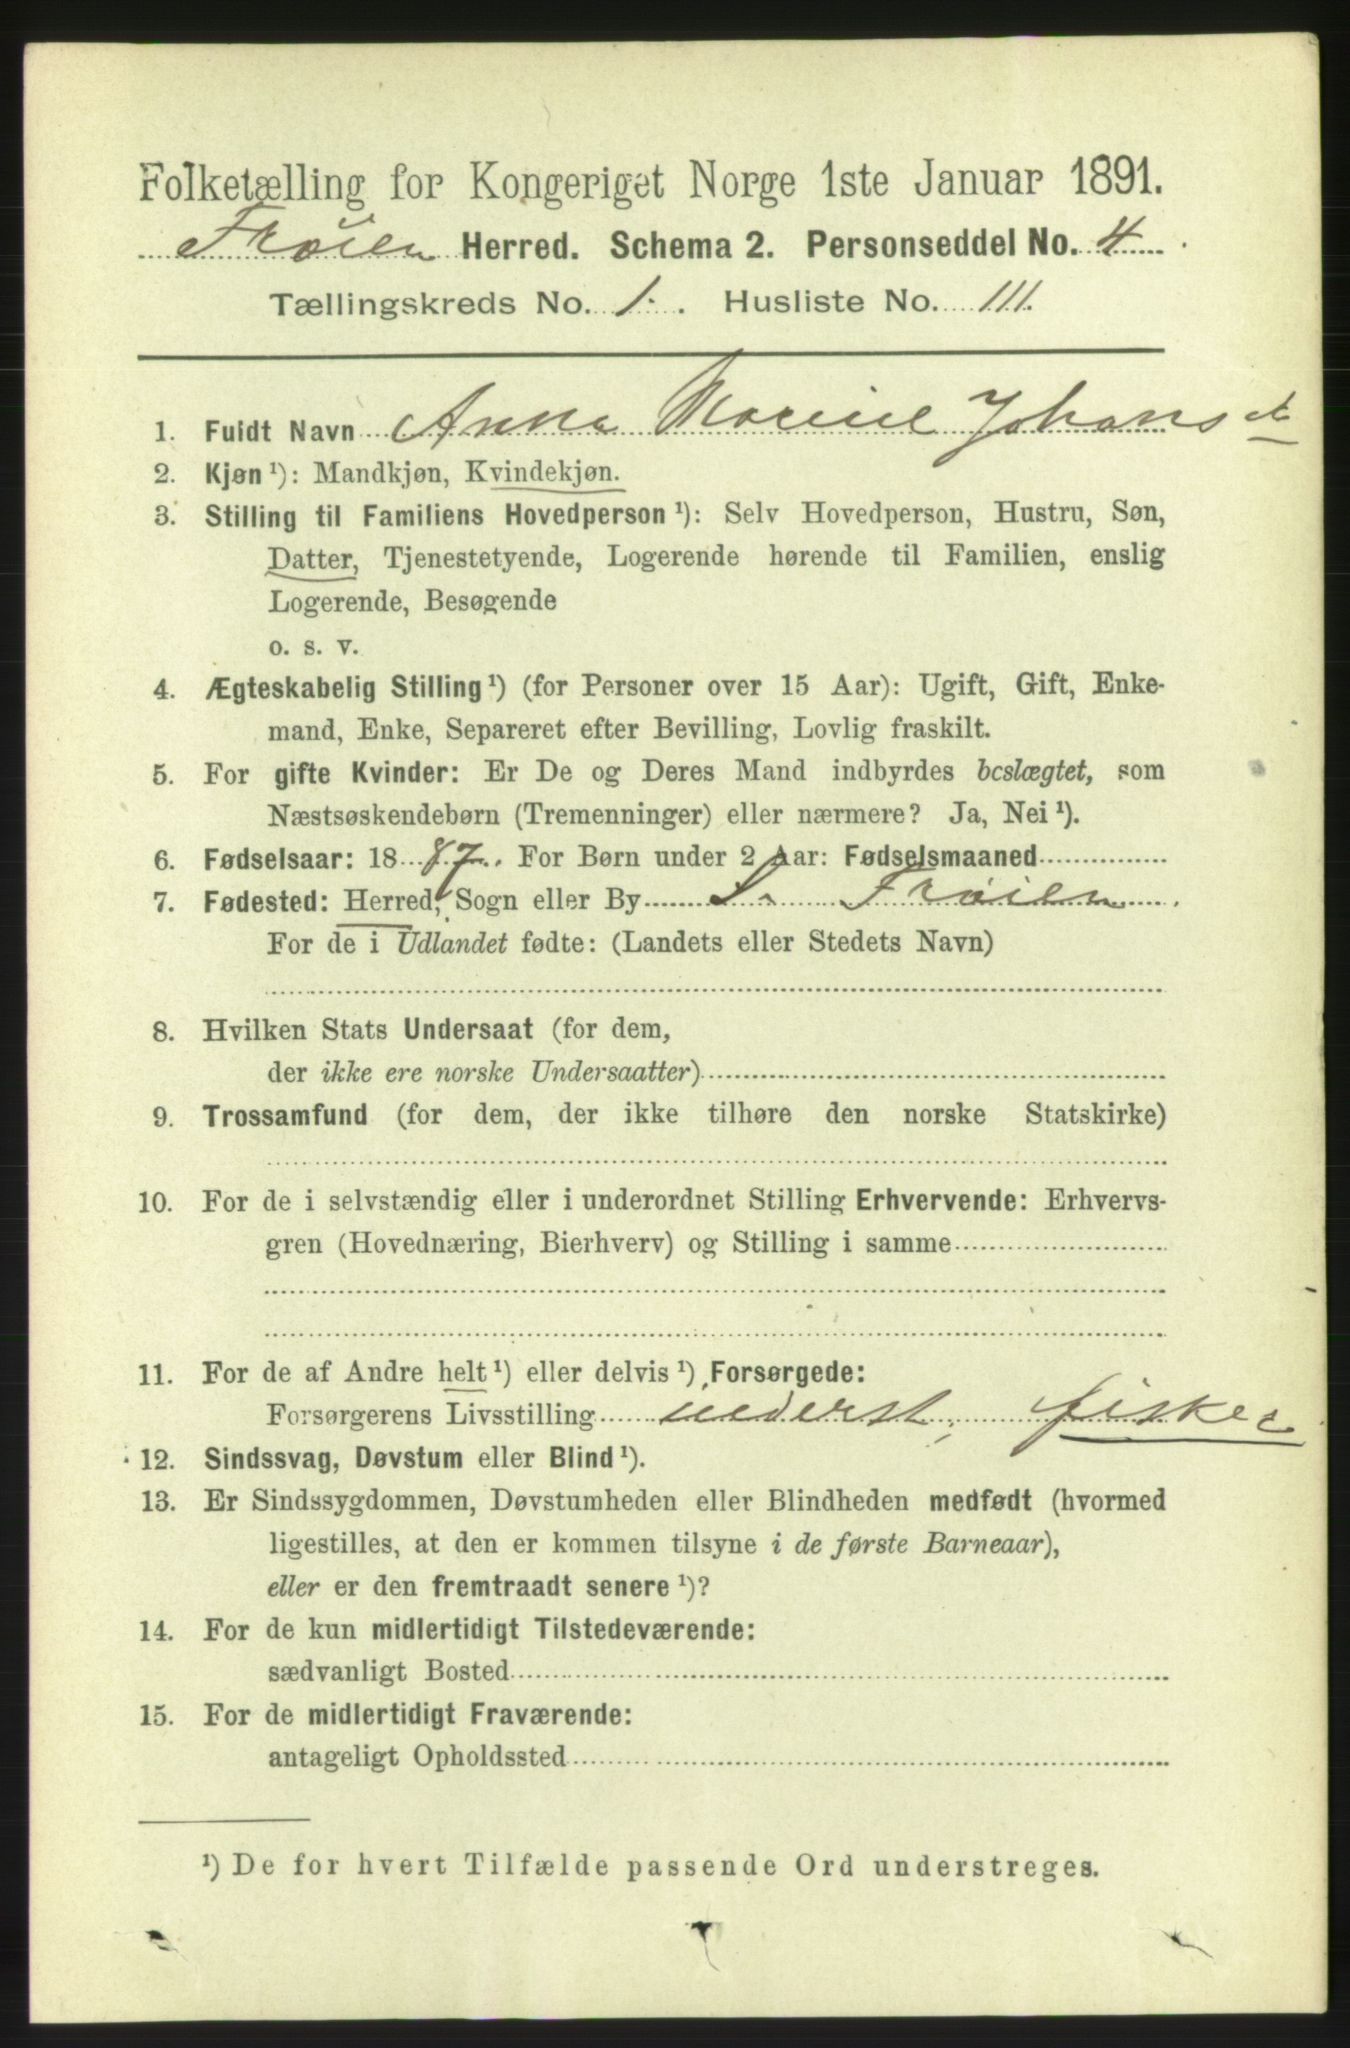 Folketælling for Kongeriget Norge 1ste Januar 1891.
Frøien Herred. Schema 2. Personseddel No. 4
Tællingskreds No. 1. Husliste No. 111.
1. Fuldt Navn Anna Johans
2. Kjøn ¹): Mandkjøn, Kvindekjøn.
3. Stilling til Familiens Hovedperson ¹): Selv Hovedperson, Hustru, Søn,
Datter, Tjenestetyende, Logerende hørende til Familien, enslig
Logerende, Besøgende
o. s. v.
4. Ægteskabelig Stilling ¹) (for Personer over 15 Aar): Ugift, Gift, Enke-
mand, Enke, Separeret efter Bevilling, Lovlig fraskilt.
5. For gifte Kvinder: Er De og Deres Mand indbyrdes beslægtet, som
Næstsøskendebørn (Tremenninger) eller nærmere? Ja, Nei ¹).
6. Fødselsaar: 1887. For Børn under 2 Aar: Fødselsmaaned
7. Fødested: Herred, Sogn eller By S. Frøien
For de i Udlandet fødte: (Landets eller Stedets Navn)
8. Hvilken Stats Undersaat (for dem,
der ikke ere norske Undersaatter)
9. Trossamfund (for dem, der ikke tilhøre den norske Statskirke)
10. For de i selvstændig eller i underordnet Stilling Erhvervende: Erhvervs-
gren (Hovednæring, Bierhverv) og Stilling i samme
11. For de af Andre helt ¹) eller delvis ¹) Forsørgede:
Forsørgerens Livsstilling fisker
12. Sindssvag, Døvstum eller Blind ¹).
13. Er Sindssygdommen, Døvstumheden eller Blindheden medfødt (hvormed
ligestilles, at den er kommen tilsyne i de første Barneaar),
eller er den fremtraadt senere ¹)?
14. For de kun midlertidigt Tilstedeværende:
sædvanligt Bosted
15. For de midlertidigt Fraværende:
antageligt Opholdssted
¹) De for hvert Tilfælde passende Ord understreges.